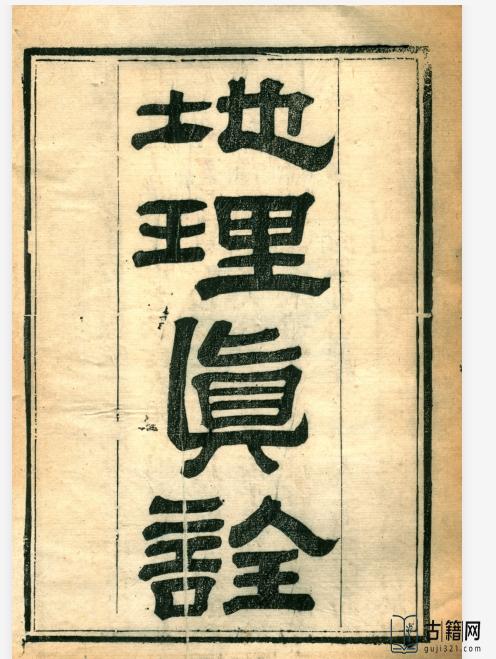 地理眞詮
古籍网
guji321.com